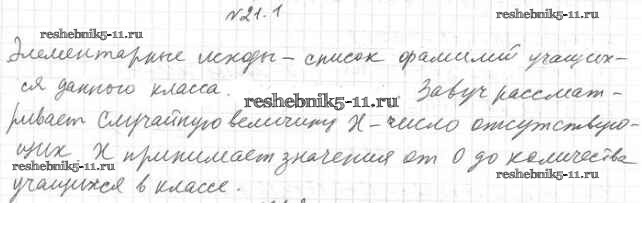 №21.1
reshebnik5-11.ru
Элементарные исходы – список фамилий учащих-
ся данного класса. Завуч рассмат-
reshebnik5-11.ru
ривает случайную величину X – число отсутствую-
щих. X принимает значения от 0 до количества
reshebnik5-11.ru
учащихся в классе.
reshebnik5-11.ru